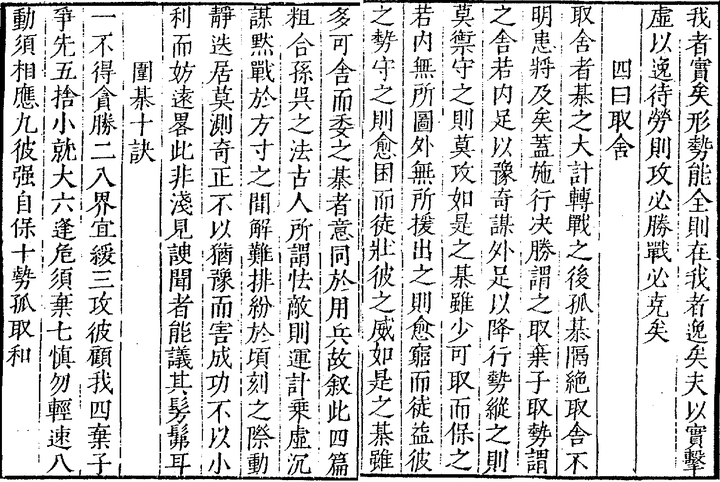 我者實矣形勢能全則在我者逸矣夫以實擊
虛以逸待勞則攻必勝戰必克矣
四曰取舍
取舍者棊之大計轉戰之後孤棊隔絶取舍不
明患將及矣蓋施行決勝謂之取棄子取勢謂
之舍若内足以豫奇謀外足以降行勢縱之則
莫禦守之則莫攻如是之棊雖少可取而保之
若内無所圖外無所援出之則愈窮而徒益彼
之勢守之則愈困而徒壯彼之威如是之棊雖
多可舍而委之棊者意同於用兵故叙此四篇
粗合孫吳之法古人所謂怯敵則運計乗虛沉
謀黙戰於方寸之間解難排紛於頃刻之際動
靜迭居莫測奇正不以猶豫而害成功不以小
利而妨遠畧此非淺見諛聞者能議其髣髴耳
圍棊十訣
一不得貪勝二入界宜緩三攻彼顧我四棄子
爭先五捨小就大六逢危須棄七慎勿輕速八
動須相應九彼强自保十勢孤取和